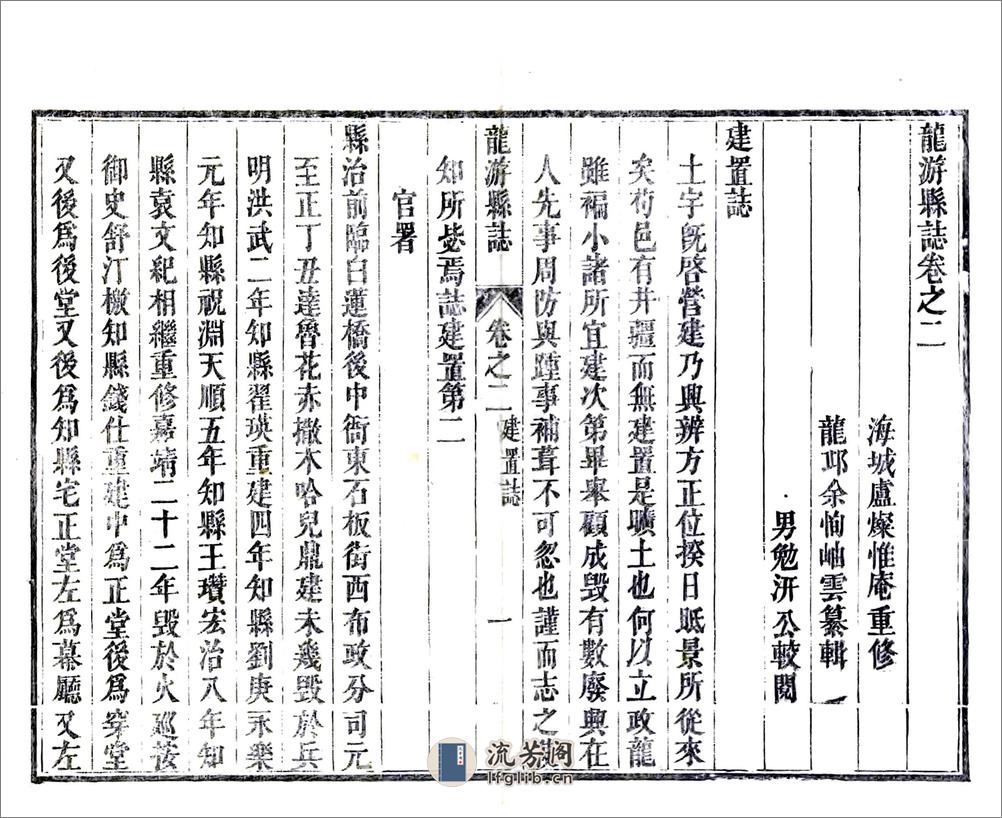 龍游縣誌卷之二
海城盧燦惟庵重修
龍邱余恂岫雲纂輯
男勉汧公較閱
建置誌
土宇旣啓營建乃興辨方正位揆日眂景所從來
矣苟邑有井疆而無建置是曠土也何以立政龍
雖褊小諸所宜建次第畢舉顧成毀有數廢興在
人先事周防與踵事補葺不可忽也謹而志之
龍游縣誌 卷之二 建置誌 一
知所毖焉誌建置第二
官署
縣治前臨白蓮橋後中衙東石板街西布政分司元
至正丁丑達魯花赤撒木哈兒鼎建未幾毀於兵
明洪武二年知縣翟瑛重建四年知縣劉庚永樂
元年知縣祝淵天順五年知縣王瓚宏治八年知
縣袁文紀相繼重修嘉靖二十二年毀於火廵按
御史舒汀檄知縣錢仕重建中爲正堂後爲穿堂
又後爲後堂又後爲知縣宅正堂左爲幕廳又左
流芳阁
lfglib.cn